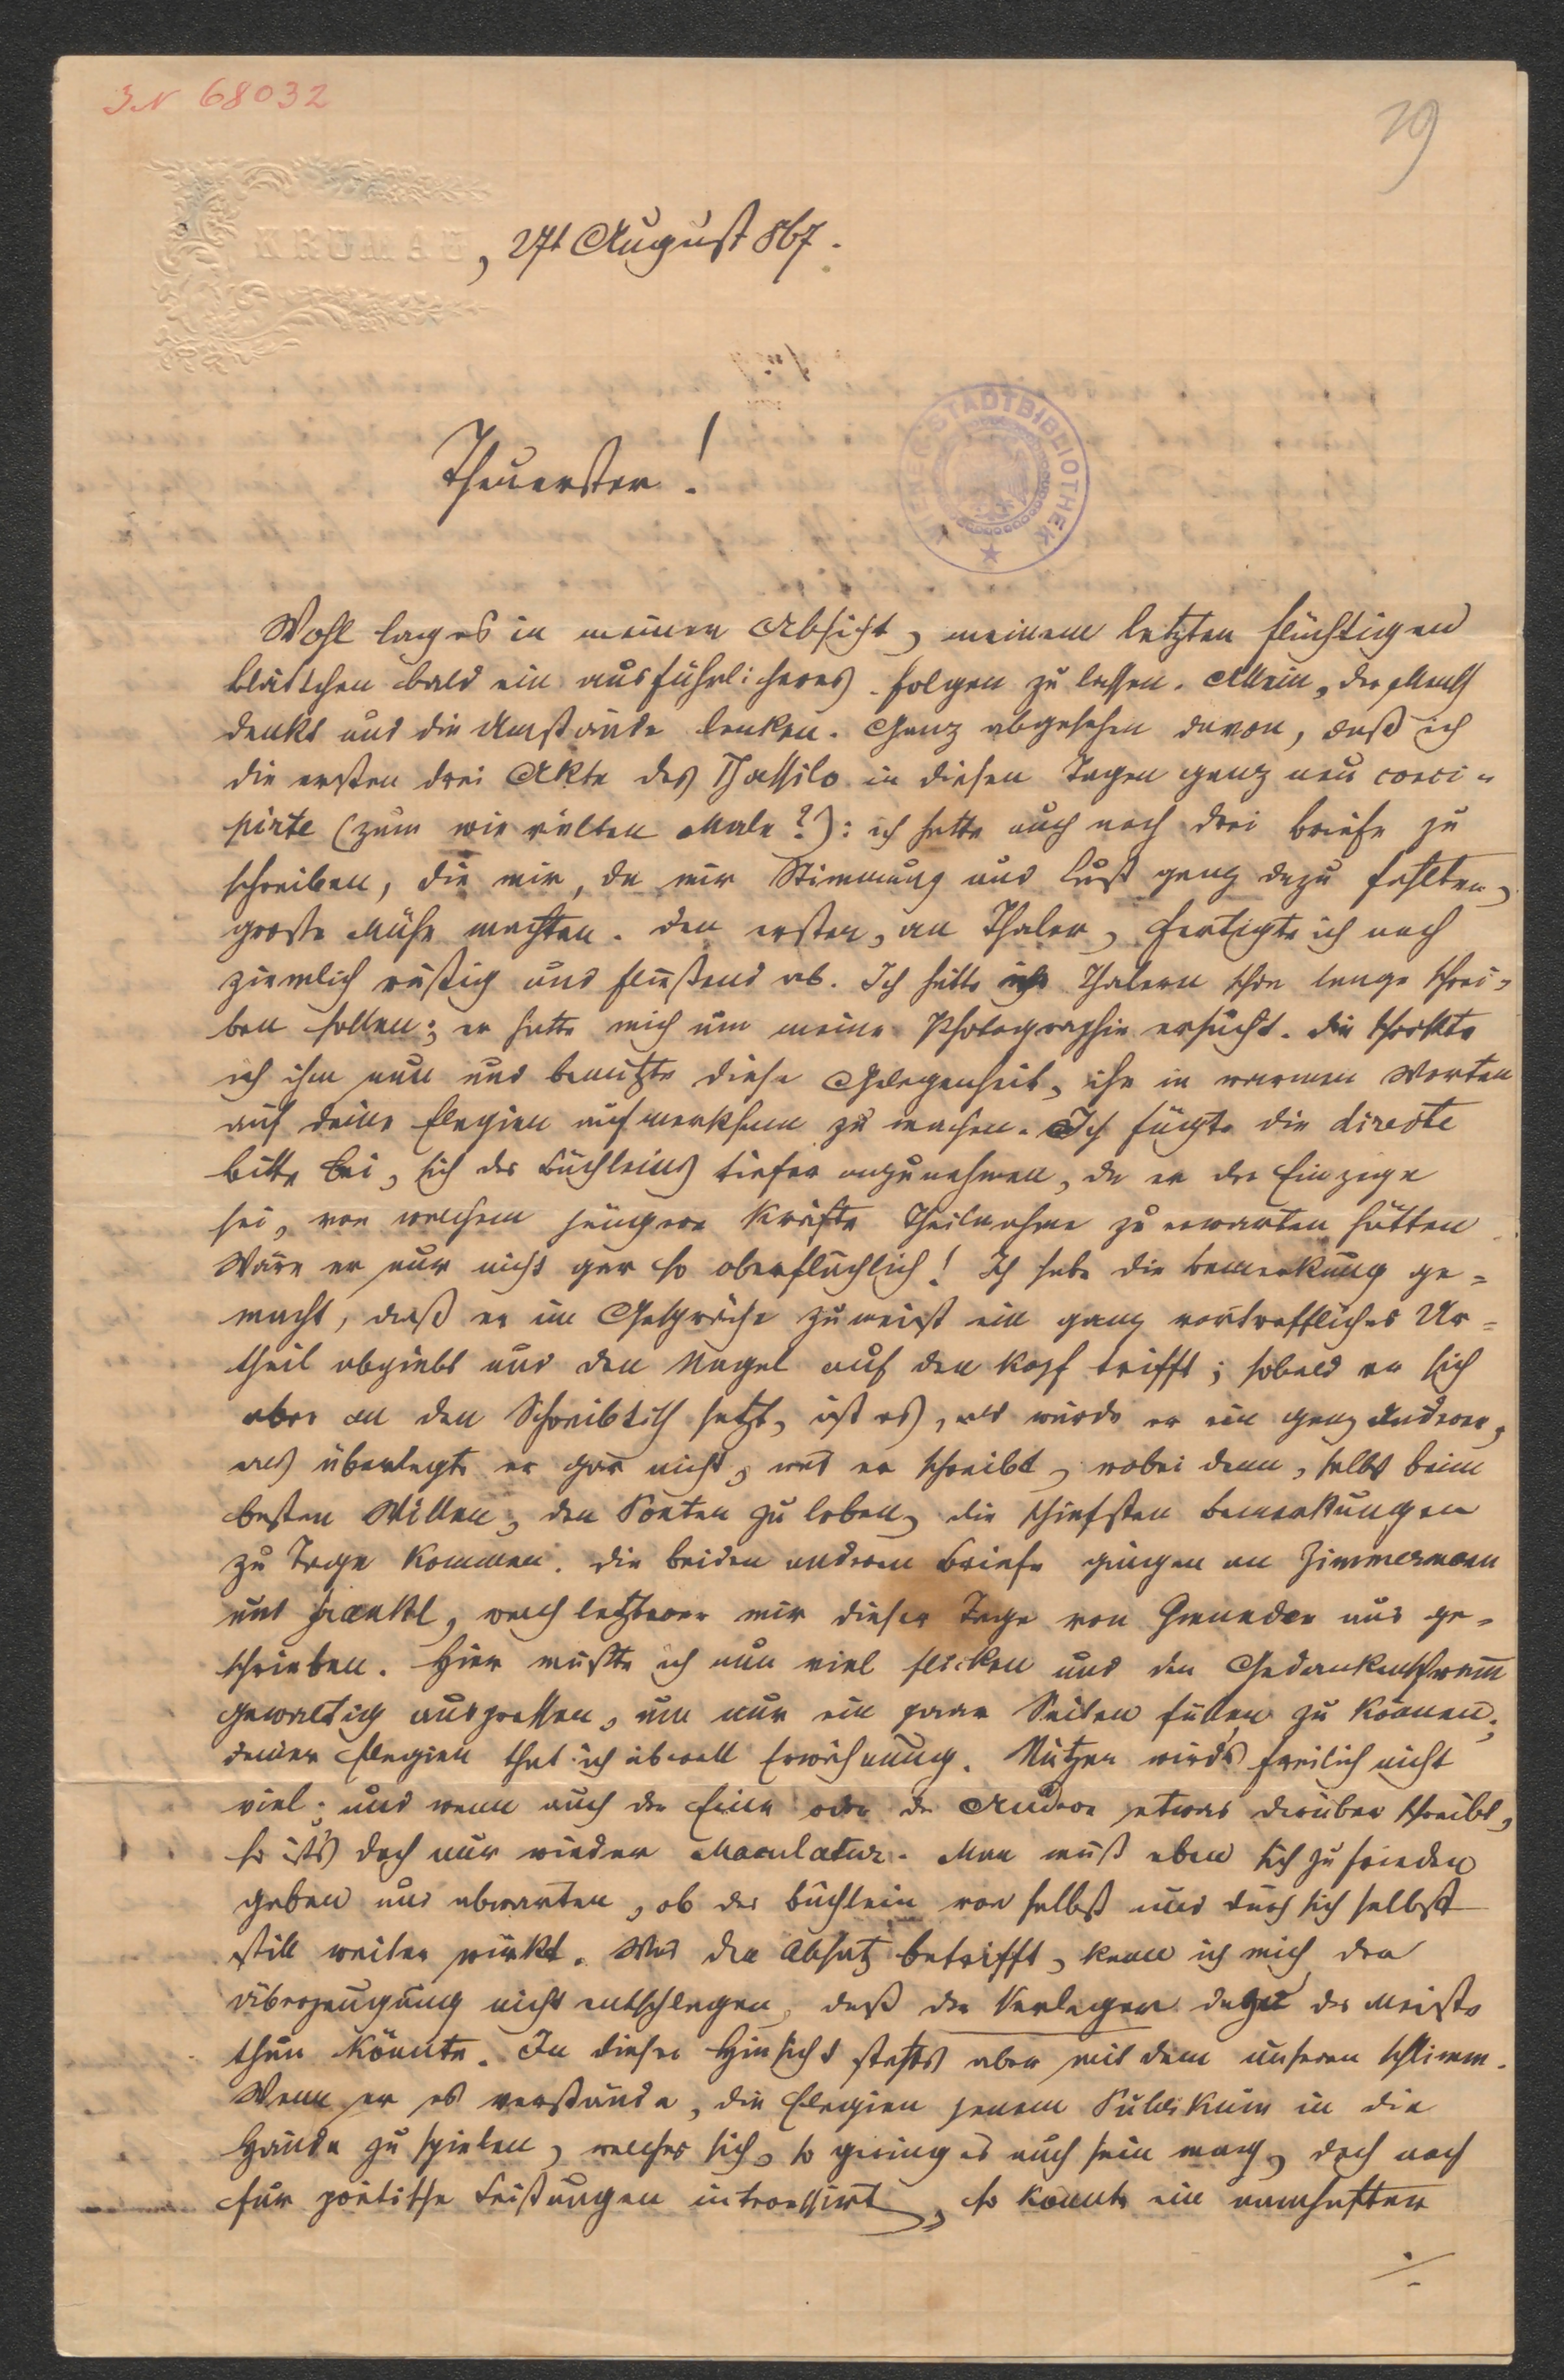 JN 68032
29
KRUMAU, 27t August 867.
WIENER STADTBIBLIOTHEK
Theuerster!
Wohl lag es in meiner Absicht, meinem letzten flüchtigen
Blättchen bald ein ausführlicheres folgen zu lassen. Allein, der Mensch
denkt und die Umstände lenken. Ganz abgesehen davon, daß ich
die ersten drei Akte des Thassilo in diesen Tagen ganz neu conci-
pirte (zum wie vielten Male?): ich hatte auch noch drei Briefe zu
schreiben, die mir, da mir Stimmung und Lust ganz dazu fehlten,
große Mühe machten. Den ersten, an Thaler, fertigte ich noch
ziemlich rüstig und fließend ab. Ich hätte Thalern schon lange schrei-
ben sollen; er hatte mich um meine Photographie ersucht. Die schickte
ich ihm nun und benutzte diese Gelegenheit, ihn in warmen Worten
auf deine Elegien aufmerksam zu machen. Ich fügte die directe
Bitte bei, sich des Büchleins tiefer anzunehmen, da er der Einzige
sei, von welchem jüngere Kräfte Theilnahme zu erwarten hätten.
Wäre er nur nicht gar so oberflächlich! Ich habe die Bemerkung ge-
macht, daß er im Gespräche zumeist ein ganz vortreffliches Ur-
theil abgiebt und den Nagel auf den Kopf trifft; sobald er sich
aber an den Schreibtisch setzt, ist es, als würde er ein ganz Anderer,
als überlegte er gar nicht, was er schreibt, wobei denn, selbst beim
besten Willen, den Poeten zu loben, die schiefsten Bemerkungen
zu Tage kommen. Die beiden anderen Briefe gingen an Zimmermann
und Frankl, welch letzterer mir dieser Tage von Gmunden aus ge-
schrieben. Hier mußte ich nun viel flicken und den Gedankenschwamm
gewaltig auspressen, um nur ein paar Seiten füllen zu können;
deiner Elegien that ich überall Erwähnung. Nützen wird's freilich nicht
viel; und wenn auch der Eine oder der Andere etwas darüber schreibt,
so ist's doch nur wieder Maculatur. Man muß eben sich zufrieden
geben und abwarten, ob das Büchlein von selbst und durch sich selbst
still weiter wirkt. Was den Absatz betrifft, kann ich mich der
Überzeugung nicht entschlagen, daß der Verleger dazu das Meiste
thun könnte. In dieser Hinsicht steht's aber mit dem unseren schlimm.
Wenn er es verstünde, die Elegien jenem Publikum in die
Hände zu spielen, welches sich, so gering es auch sein mag, doch noch
für poetische Leistungen interessirt, so könnte ein namhafter
./.